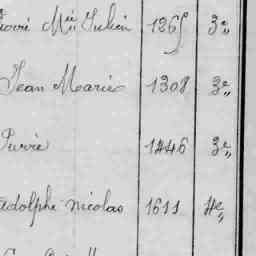 Pierre Mie Julien 1265 3e
Jean Marie 1308 3e
Pierre 1446 3e
Adolphe Nicolas 1611 4e